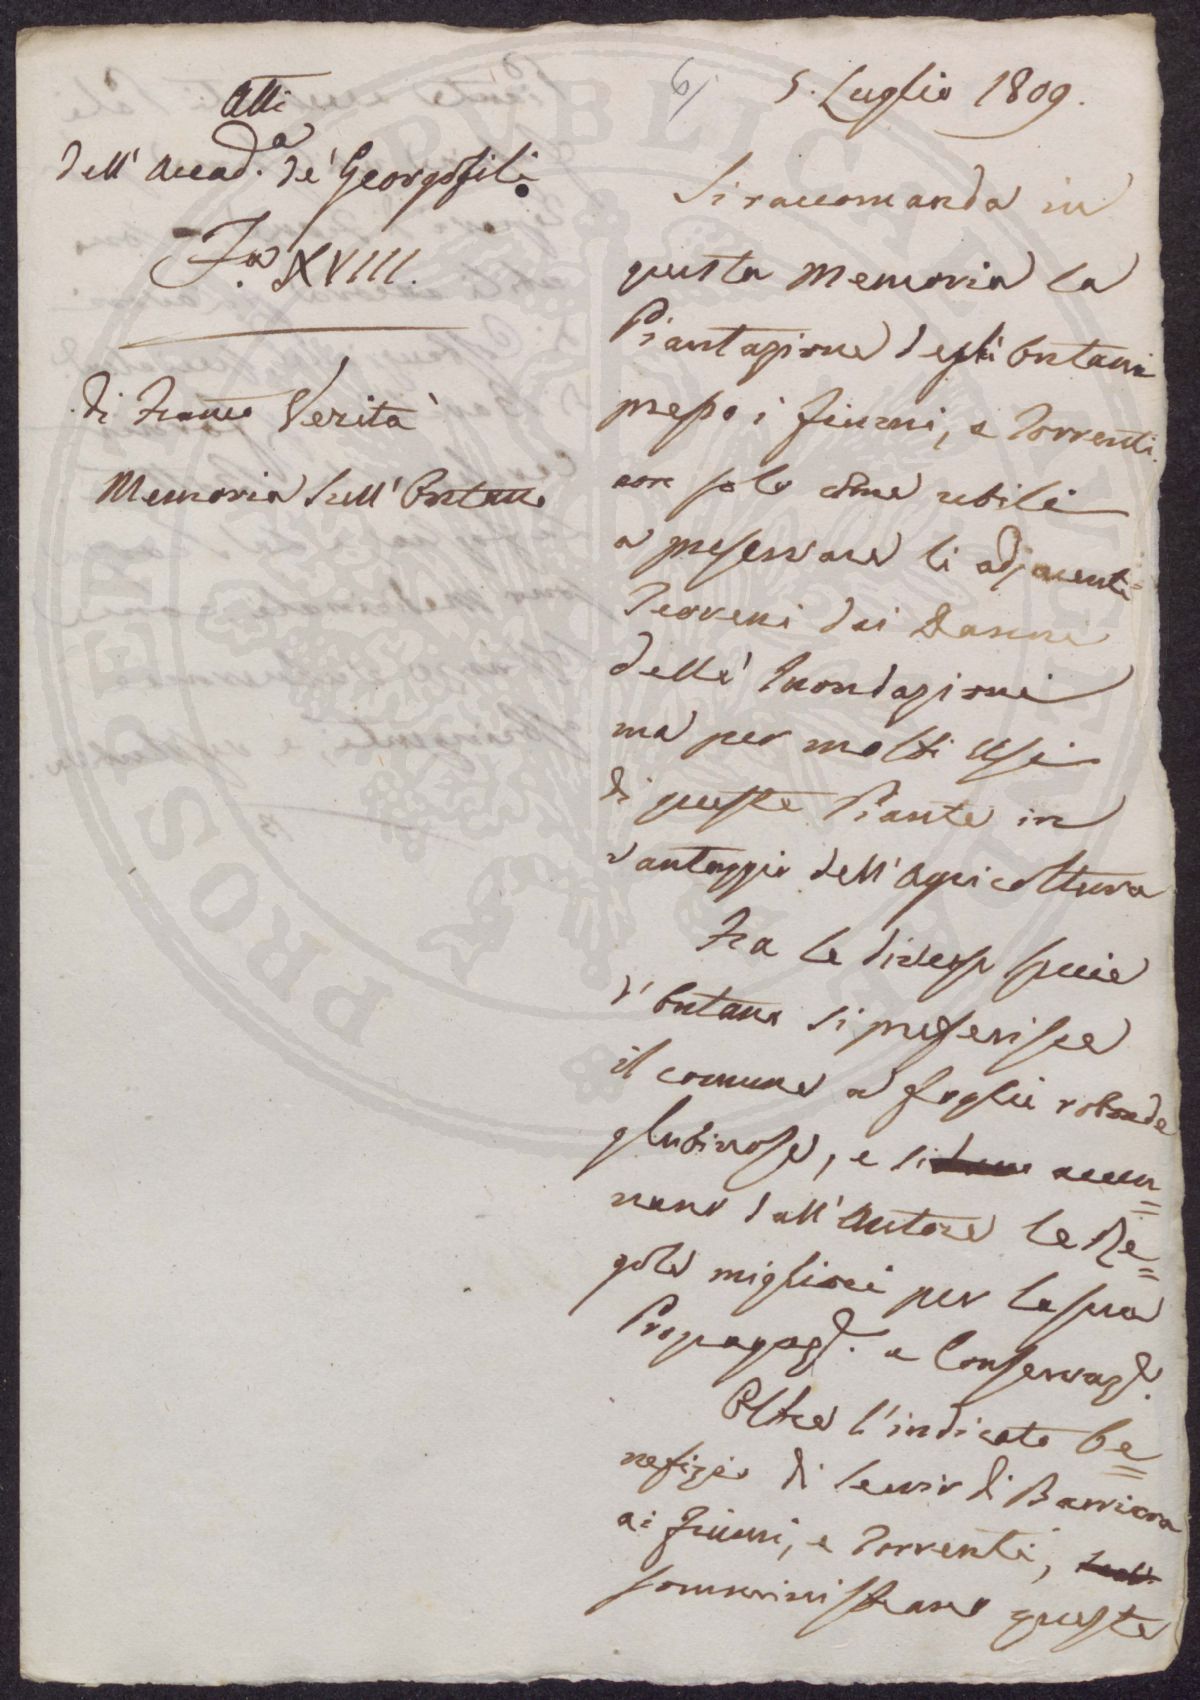 Atti
dell' Accad.a de' Georgofili
XVIII.
di Franco Verità
Memoria sull' Ontano
6/
5. Luglio 1809.
Si raccomanda in
questa Memoria la
Piantagione degli Ontani
presso i fiumi, e Torrenti
non solo come utili
a preservare li adjacenti
Terreni dai Danni
delle Inondazioni
ma per molti usi
di queste Piante in
vantaggio dell' Agricoltura
Fra le diverse specie
d' Ontano si preferisce
il comune a foglie rotonde
glutinose, e si accen=
nano dall' Autore le Re=
gole migliori per la sua
Propagaz.e e Conservaz.e
Oltre l' indicato be=
nefizio di servir di Barriera
ai fiumi, e Torrenti,
somministrano queste
PROSPERITATI PUBLICAE AUGENDAE